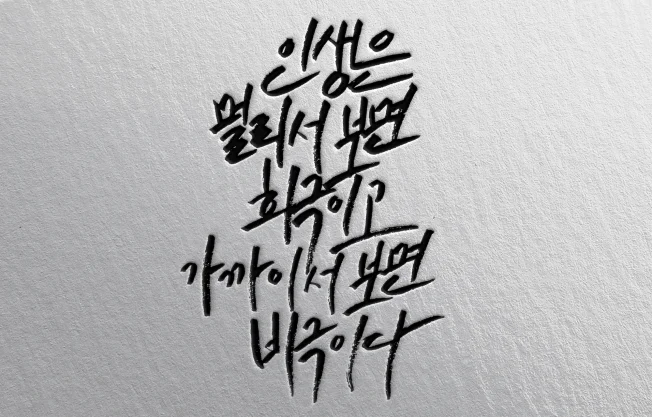 인생은
멀리서 보면
희극이고
가까이서 보면
비극이다